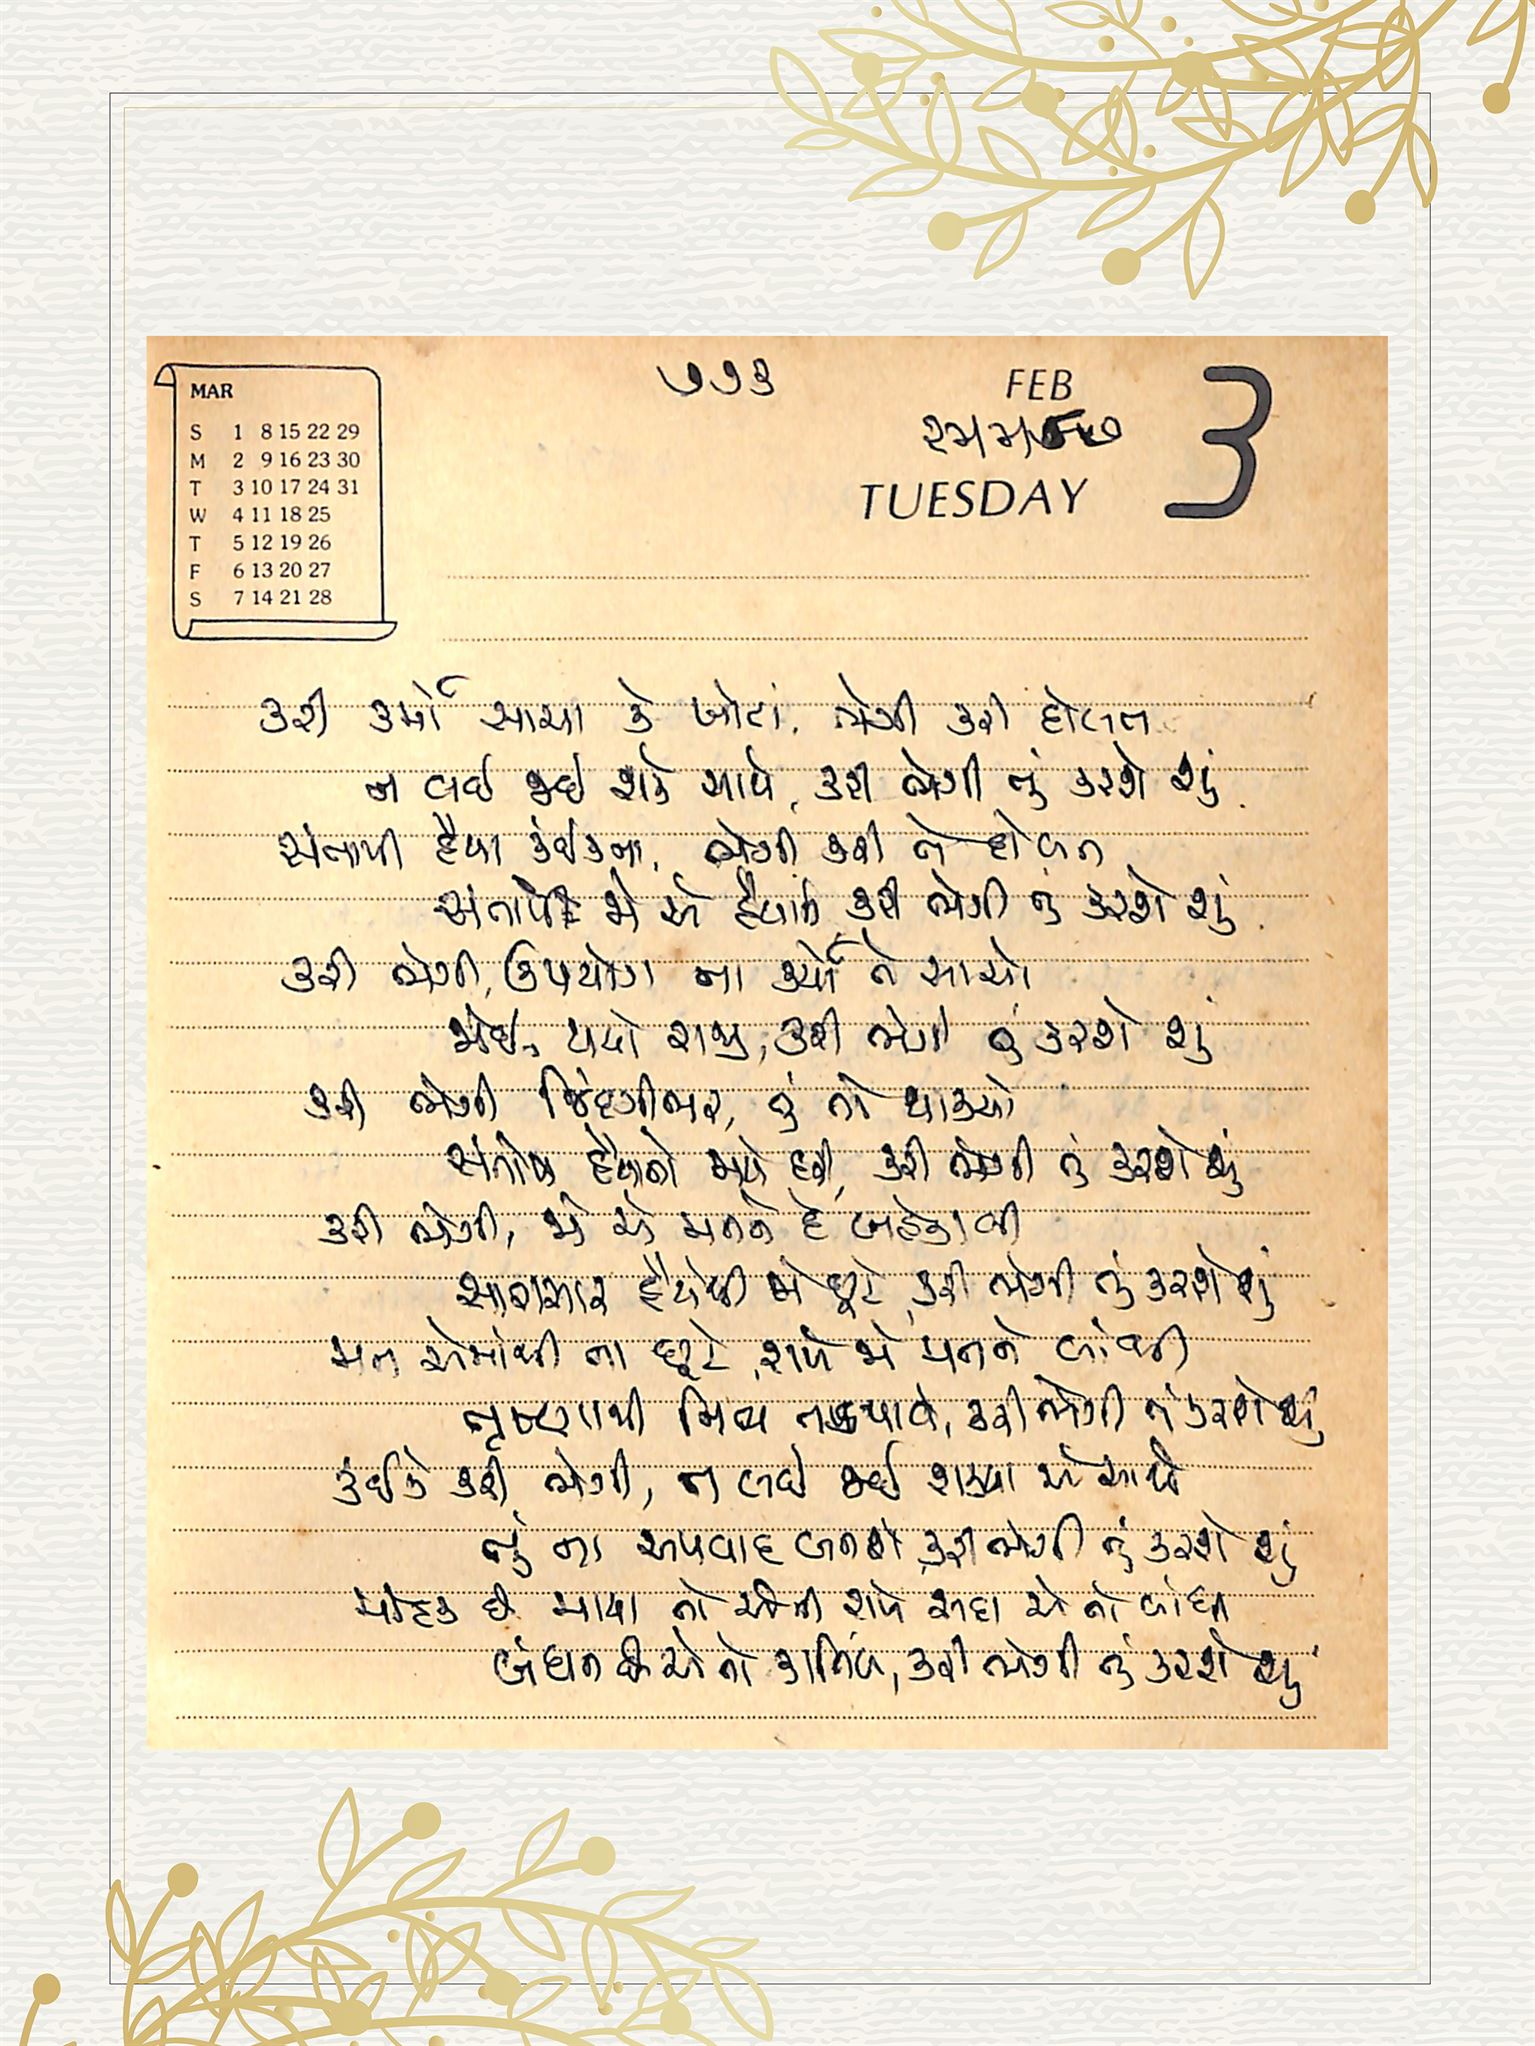 MAR
S 1 8 15 22 29
M 2 9 16 23 30
T 3 10 17 24 31
W 4 11 18 25
T 5 12 19 26
F 6 13 20 27
S 7 14 21 28
૭૭૩
FEB
TUESDAY
3
કરી કર્મો સાચા કે ખોટાં, ભેગી કરી દોલત
ન લઈ જઈ શકે સાથે, કરી ભેગી તું કરશે શું
સંતાપી હૈયા કંઈકના, ભેગી કરી તેં દોલત
સંતાપે જો એ હૈયાને, કરી ભેગી તું કરશે શું
કરી ભેગી, ઉપયોગ ના કર્યો તેં સાચો
જોઈ, થયો રાજી, કરી ભેગી તું કરશે શું
કરી ભેગી જિંદગીભર, તું તો થાક્યો
સંતોષ હૈયાનો જાયે હરી, કરી ભેગી તું કરશે શું
કરી ભેગી, જો એ મનને દે બહેકાવી
સારાસાર હૈયેથી જો છૂટે, કરી ભેગી તું કરશે શું
મન એમાંથી ના છૂટે, રાખે જો મનને બાંધી
તૃષ્ણાથી નિત્ય તડપાવે, કરી ભેગી તું કરશે શું
કંઈકે કરી ભેગી, ન લઈ જઈ શક્યા એ સાથે
તું ના અપવાદ બનશે, કરી ભેગી તું કરશે શું
મોહક છે માયા તો એની રાખે સદા એ તો બાંધી
બંધન છે એ તો કાતિલ, કરી ભેગી તું કરશે શું